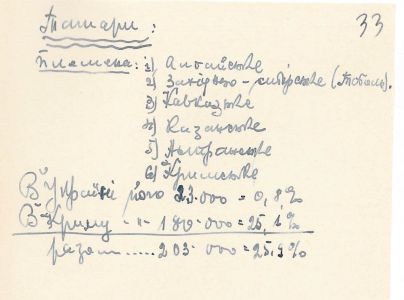 33
Татари:
Племена: 1) Алтайське
2) Західньо-сибірське (Тоболь).
3) Кавказьке
4) Казанське
5) Астраханське
6) Кримське
В Україні його 23.000 = 0,8%
В Криму -"- 180.000 = 25,1%
разом ..... 203.000 = 25,9%